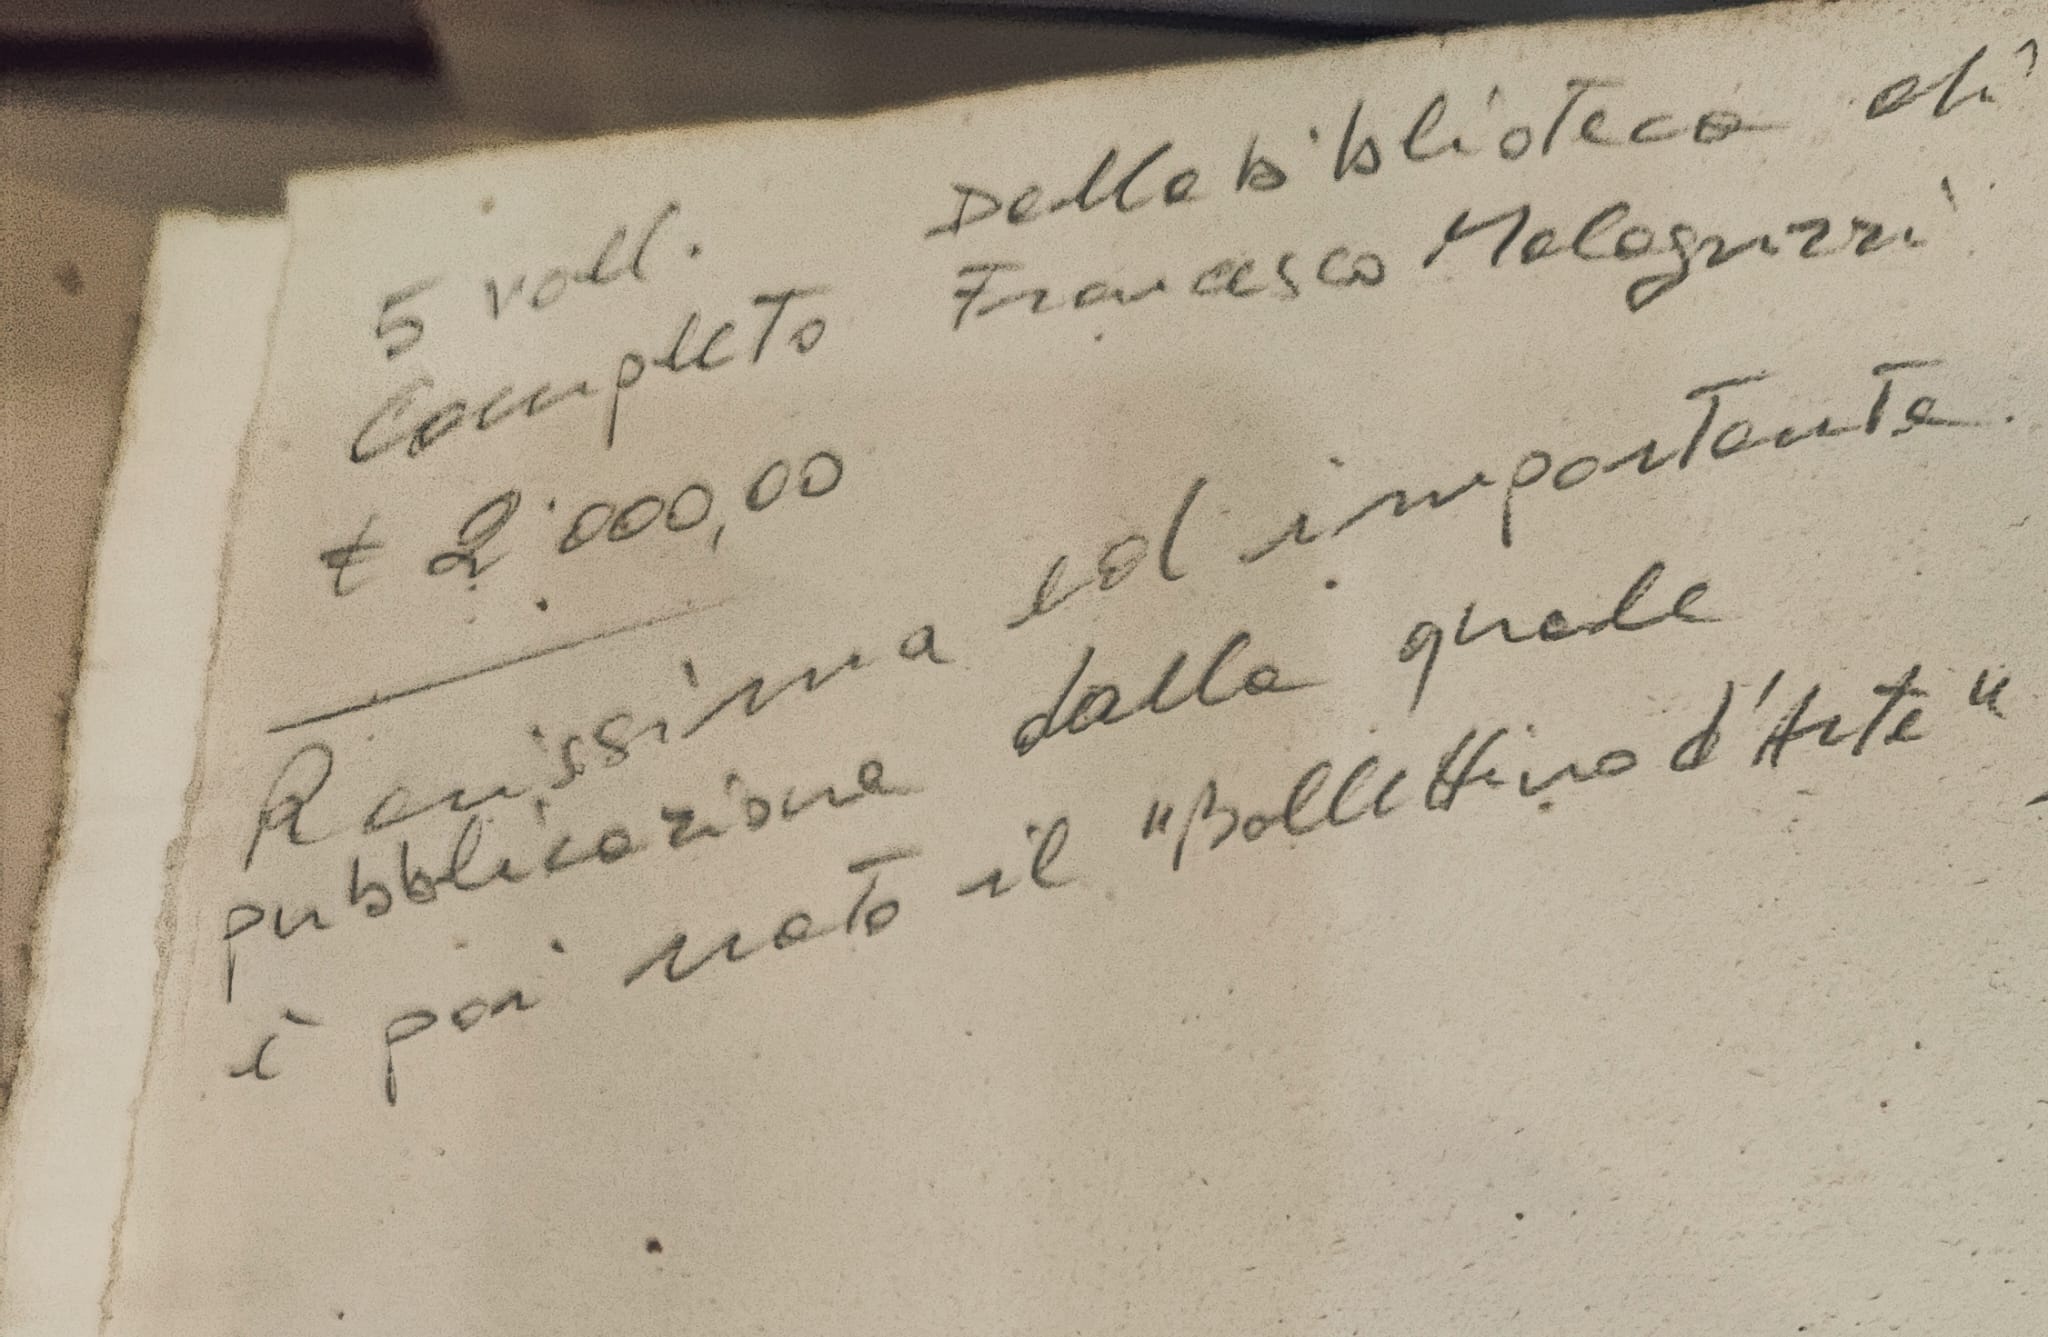 5 voll.
Completo
€ 2'000,00
Della biblioteca di
Francesco Malaguzzi
Rarissima ed importante
pubblicazione dalla quale
è poi nato il "Bollettino d'Arte"